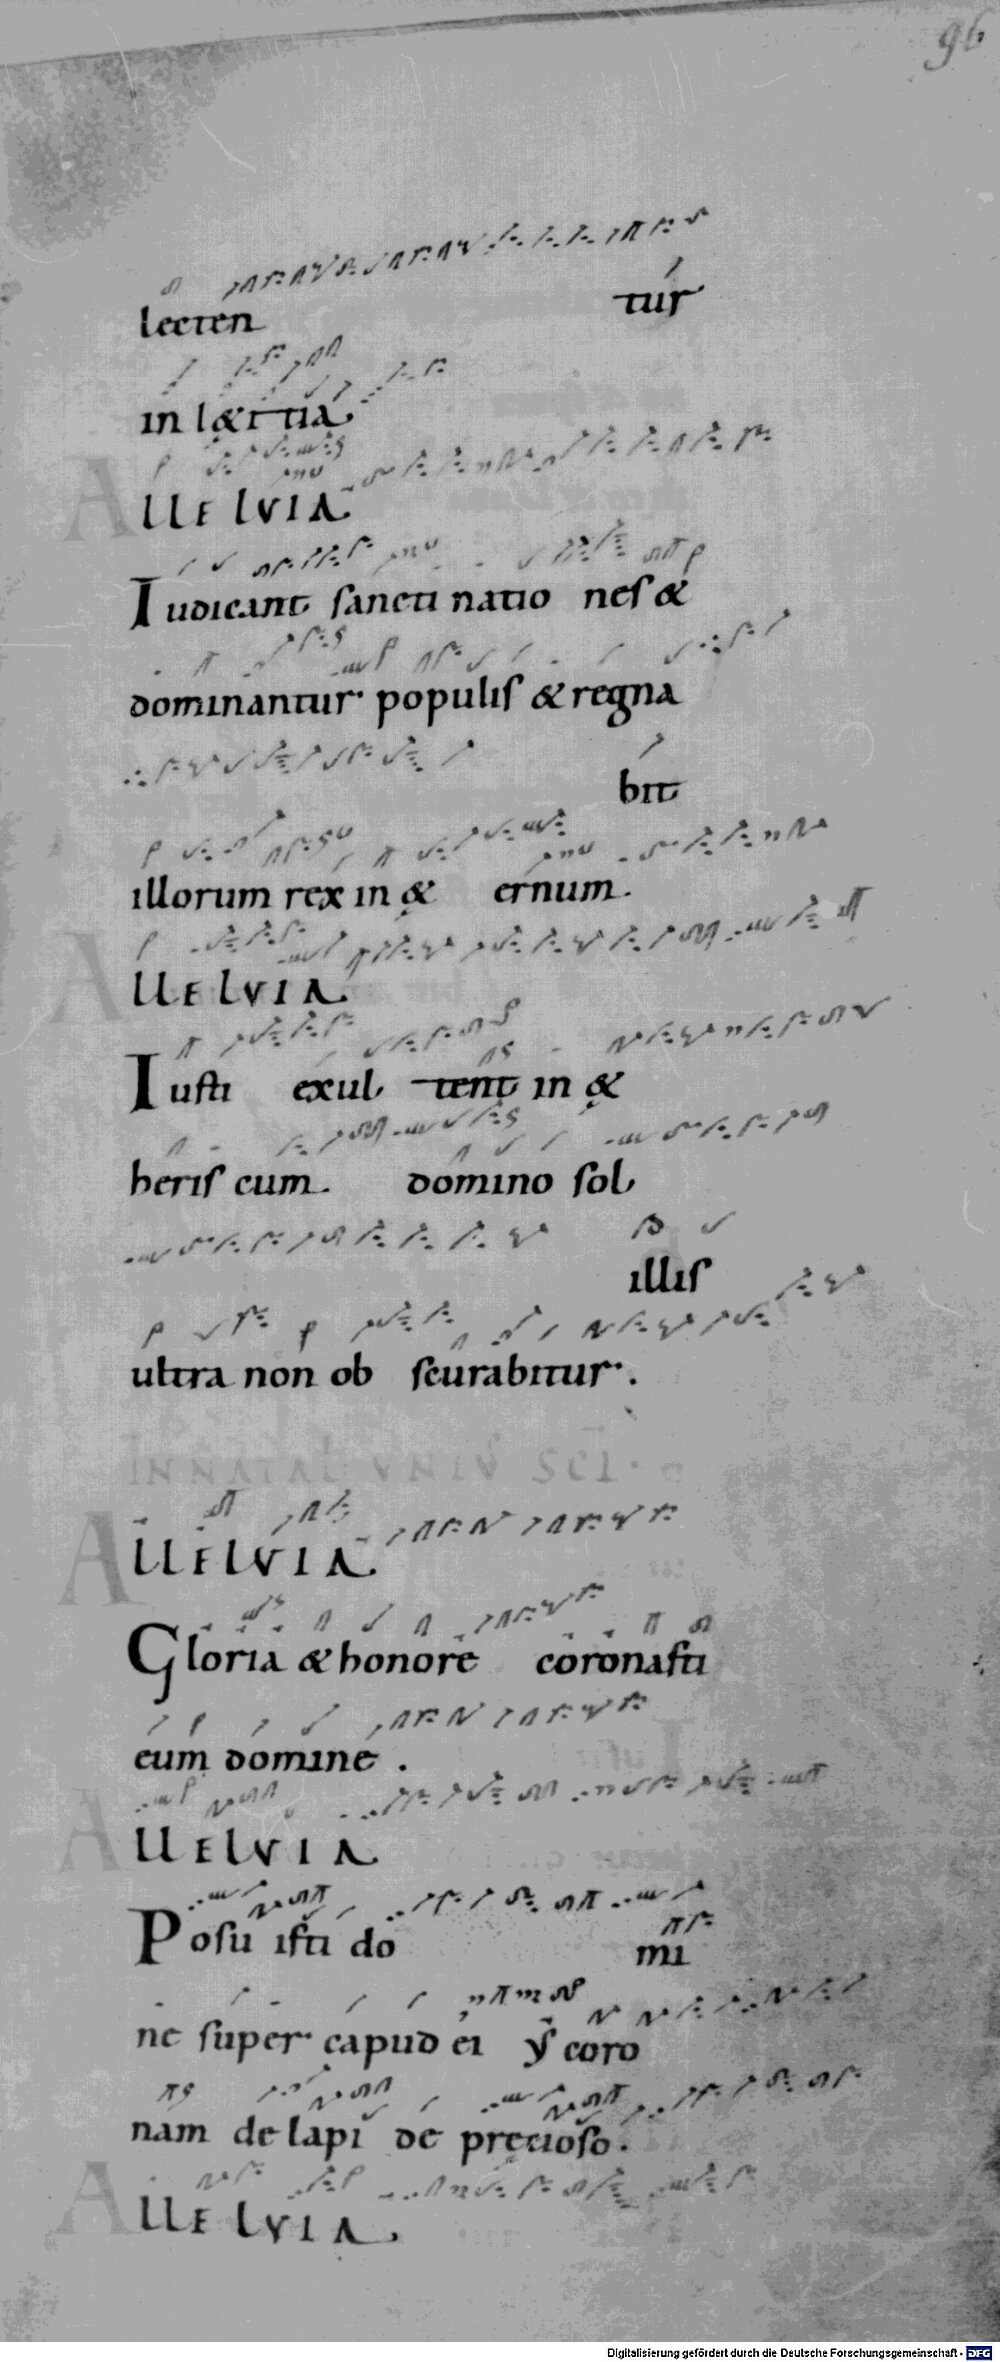 96
lecten tur
in lętitia
ALLELVIA
Iudicant sancti natio nes &
dominantur populis & regna
bit
illorum rex in & ernum.
ALLELVIA
Iusti exul tent in &
heris cum domino sol
illis
ultra non ob scurabitur.
IN NATAL VNIVS SCI.
ALLELVIA
Gloria & honore coronasti
eum domine.
ALLELVIA
Posu isti do mi
ne super capud ei coro
nam de lapi de precioso.
ALLELVIA
Digitalisierung gefördert durch die Deutsche Forschungsgemeinschaft - DFG